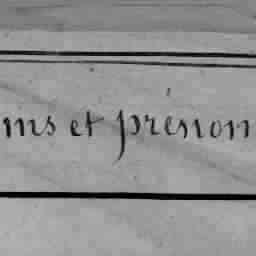 ms et prénom